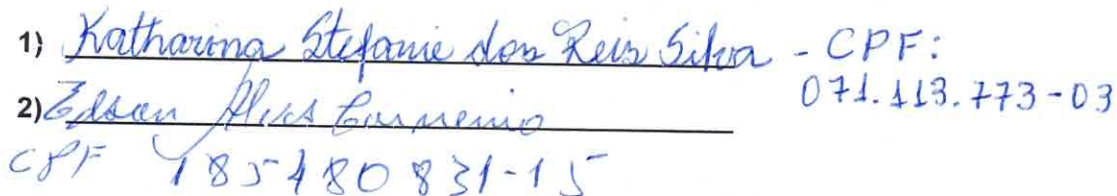 1) Katharina Stefanie dos Reis Silva - CPF:
071.113.773-03
2) Edson Alves
CPF 185480831-15